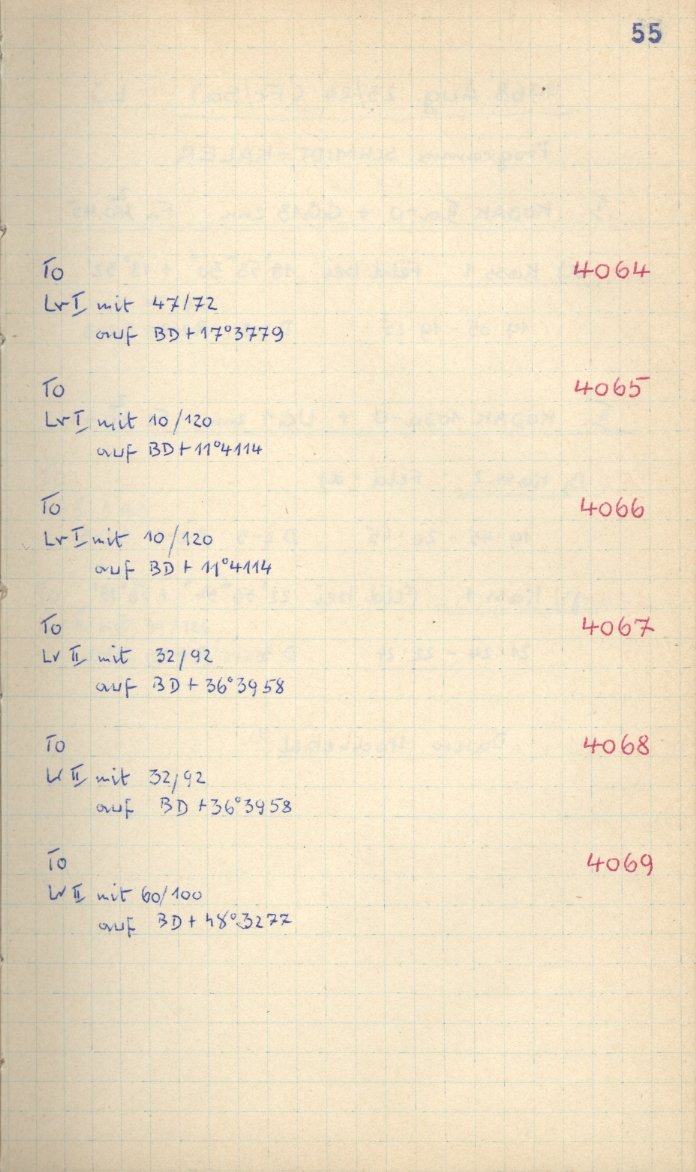 55
To 4064
Lv I mit 47/72
auf BD+17°3779
To 4065
Lv I mit 10/120
auf BD+11°4114
To 4066
Lv I mit 10/120
auf BD+11°4114
To 4067
Lv II mit 32/92
auf BD+36°3958
To 4068
Lv II mit 32/92
auf BD+36°3958
To 4069
Lv II mit 60/100
auf BD+48°3277